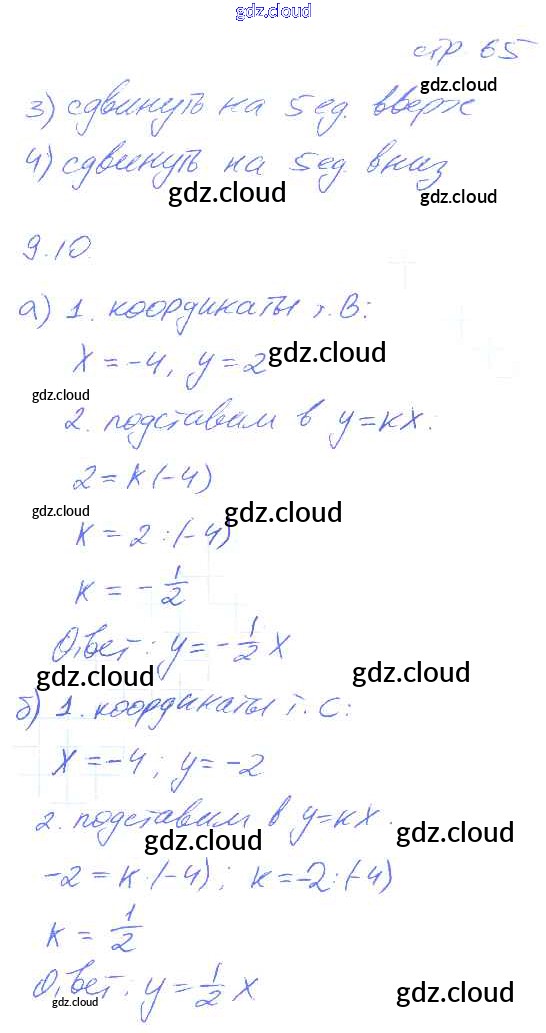 gdz.cloud
стр 65
gdz.cloud
3) сдвинуть на 5 ед. вверх
4) сдвинуть на 5 ед. вниз
gdz.cloud gdz.cloud
9.10.
а) 1. координаты т. В:
x = -4, y = 2 gdz.cloud
gdz.cloud
2. подставим в y = кx:
2 = к (-4)
gdz.cloud gdz.cloud
к = 2 : (-4)
к = - 1/2
Ответ: y = - 1/2 x
gdz.cloud gdz.cloud
б) 1. координаты т. С:
x = -4; y = -2
2. подставим в y = кx.
gdz.cloud gdz.cloud
-2 = к·(-4); к = -2:(-4)
к = 1/2
Ответ: y = 1/2 x
gdz.cloud gdz.cloud